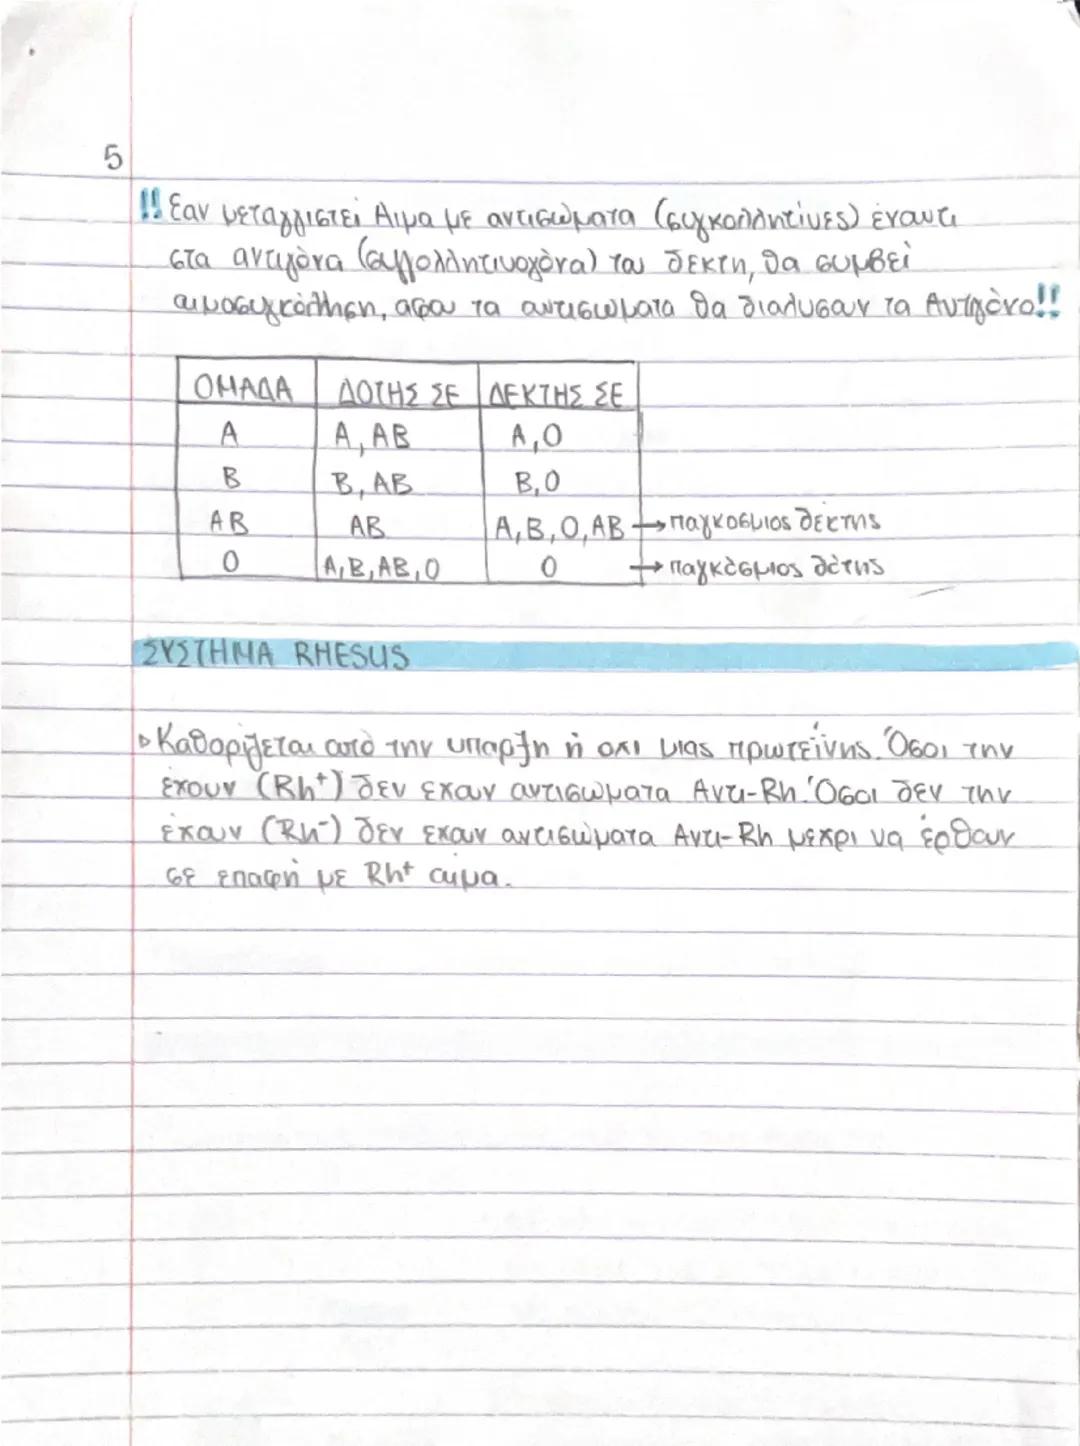 5
!! Εαν μεταγγιστεί Αιμα με αντισώματα (συγκολλητίνες) έναντι
στα αντιγόνα (συγκολλητινογόνα) του δεκτη, θα συμβεί
αιμοσυγκόλληση, αφου τα αντισωματα θα διαλυσουν τα Αντιγόνα!!
ΟΜΑΔΑ ΔΟΤΗΣ ΣΕ ΔΕΚΤΗΣ ΣΕ
Α Α, ΑΒ Α, Ο
Β Β, ΑΒ Β, Ο
ΑΒ ΑΒ Α, Β, Ο, ΑΒ → παγκοσμιος δεκτης
Ο Α, Β, ΑΒ, Ο Ο → παγκόσμιος δότης
ΣΥΣΤΗΜΑ RHESUS
▹ Καθορίζεται από την υπαρξη ή οχι μιας πρωτεΐνης. Όσοι την
έχουν (Rh+) δεν εχουν αντισωματα Αντι-Rh. Όσοι δεν την
έχουν (Rh-) δεν εχουν αντισώματα Αντι-Rh μεχρι να έρθουν
σε επαφή με Rh+ αιμα.